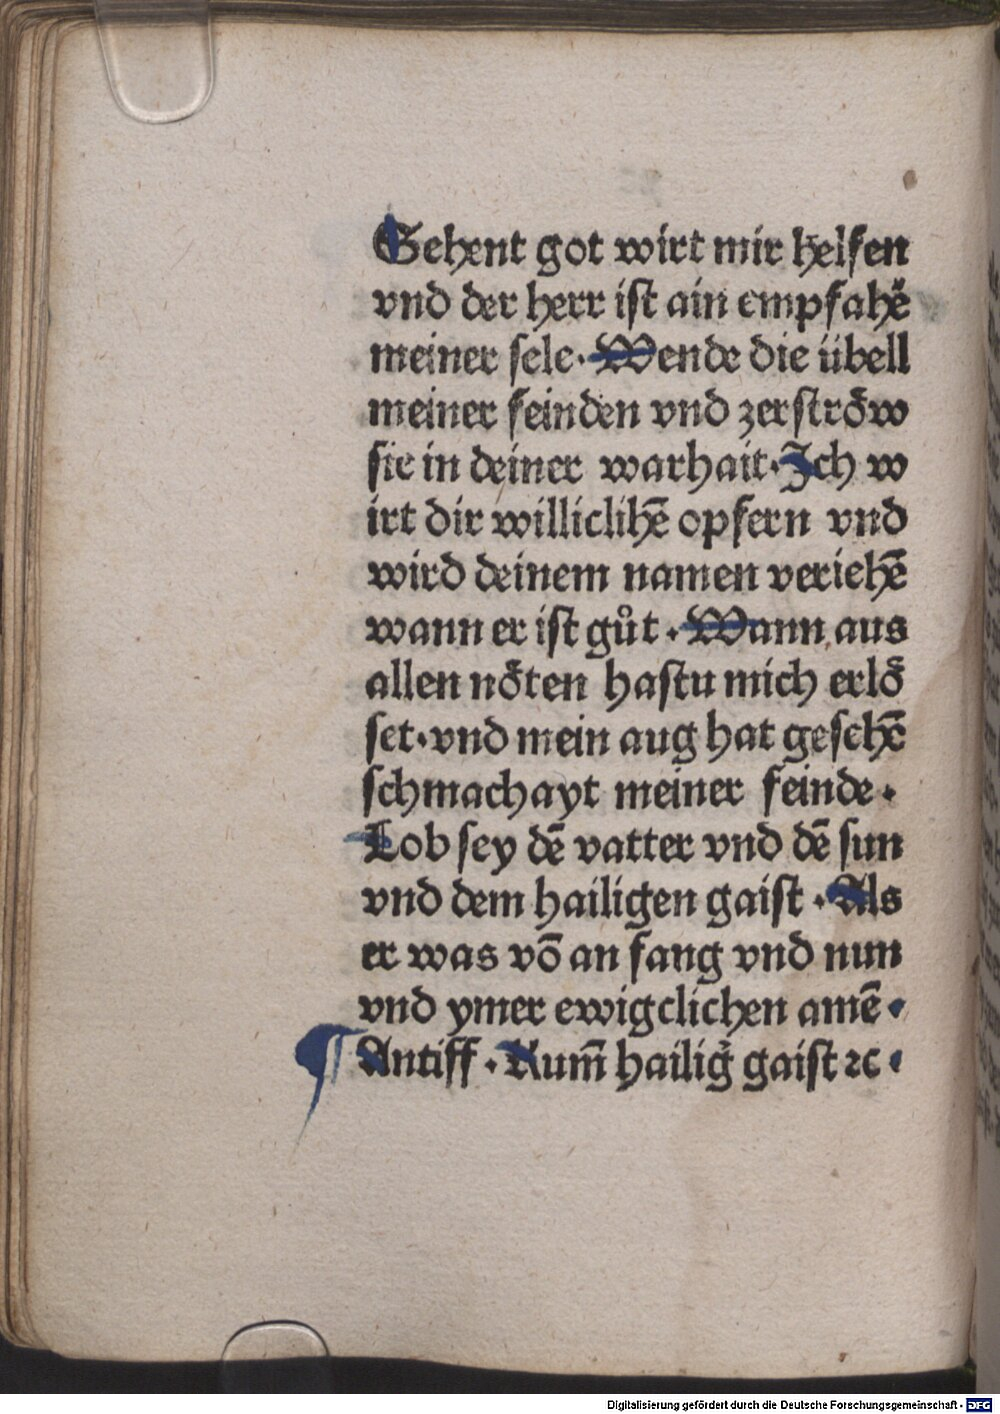 Sehent got wirt mir helfen
vnd der herr ist ain empfahē
meiner sele · Wende die übell
meiner feinden vnd zerströw
sie in deiner warhait · Ich w
irt dir williclihē opfern vnd
wird deinem namen veriehē
wann er ist gůt · Wann aus
allen nöten hastu mich erlö
set · vnd mein aug hat gesehē
schmachayt meiner feinde ·
Lob sey dē vatter vnd dē sun
vnd dem hailigen gaist · Als
er was vō an fang vnd nun
vnd ymer ewigclichen amē ·
¶ Antiff · Kum̄ hailig̉ gaist ⁊c ·
Digitalisierung gefördert durch die Deutsche Forschungsgemeinschaft - DFG